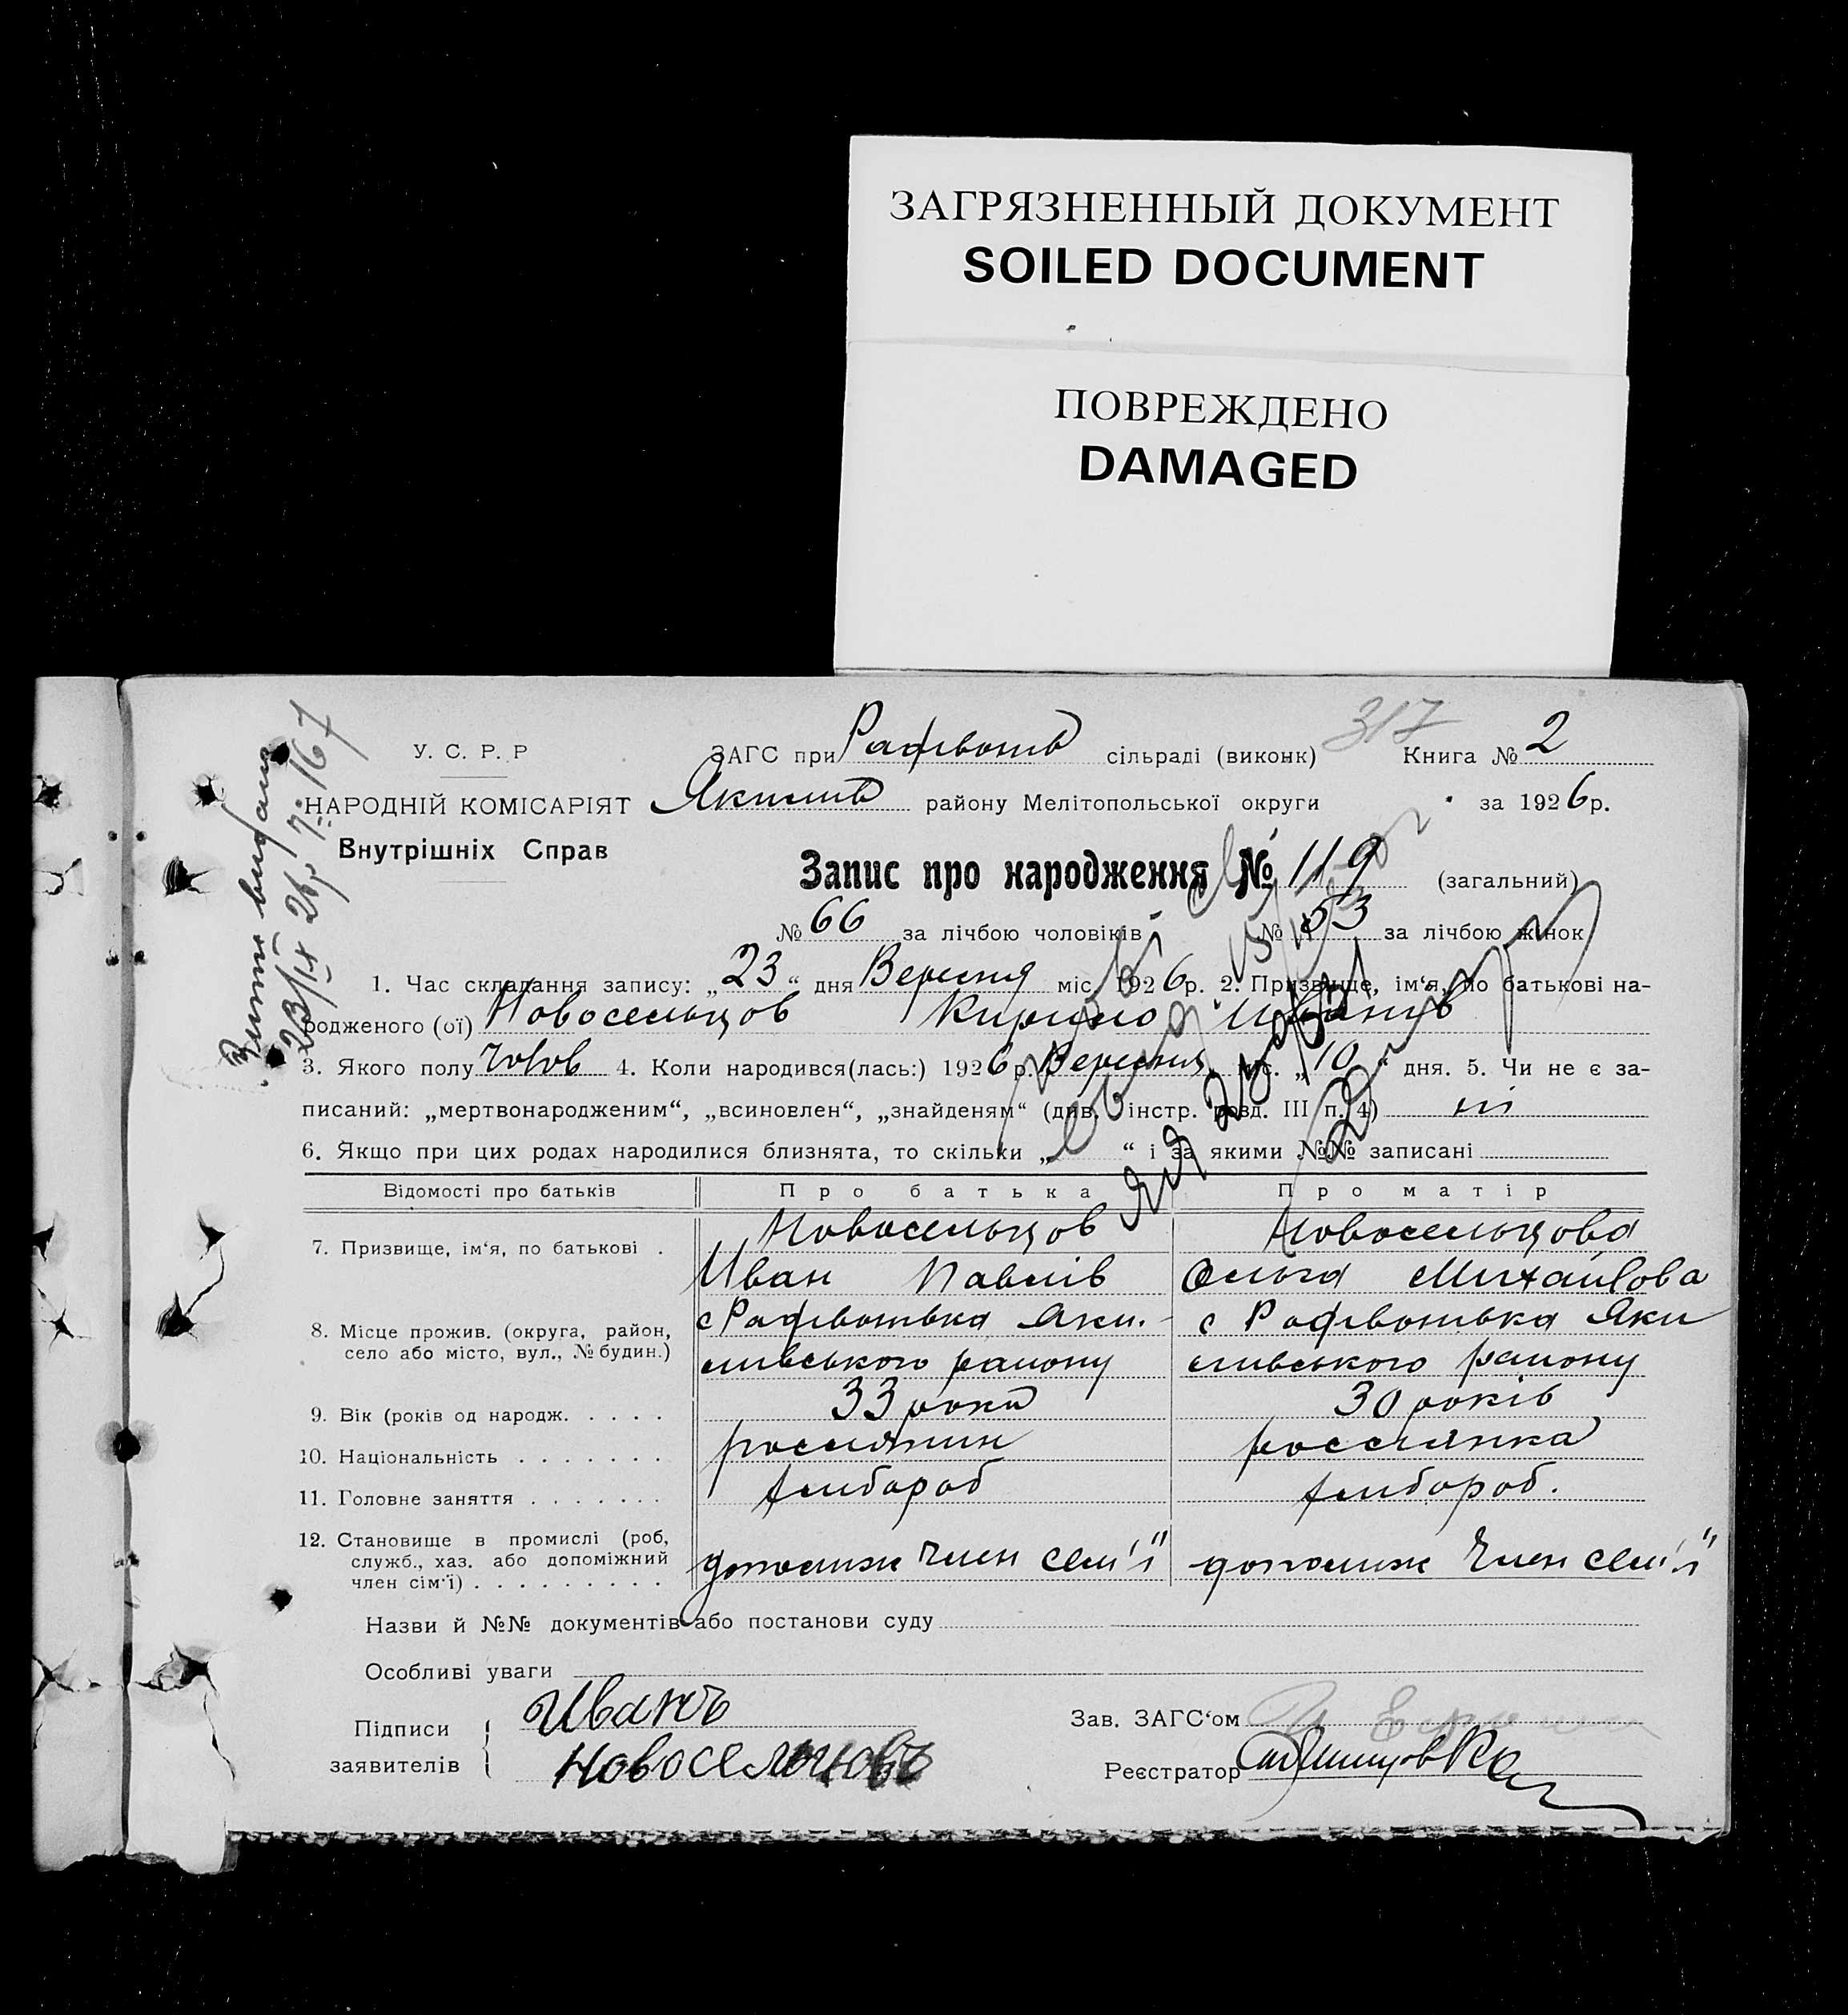 ЗАГРЯЗНЕННЫЙ ДОКУМЕНТ
SOILED DOCUMENT
ПОВРЕЖДЕНО
DAMAGED
317
У. С. Р. Р
ЗАГС при сільраді (виконк) Книга № 2
НАРОДНІЙ КОМІСАРІЯТ Якимів району Мелітопольської округи за 1926р.
Внутрішніх Справ
Запис про народження № 119 (загальний)
№ 66 за лічбою чоловіків № 53 за лічбою жінок
1. Час складання запису: „23“ дня Вересня міс. 1926р. 2. Призвище, ім‘я, по батькові на-
родженого (ої) Новосельцов Кирило Иванів
3. Якого полу чолов 4. Коли народився(лась:) 1926р. Вересня міс. „10“ дня. 5. Чи не є за-
писаний: „мертвонародженим“, „всиновлен“, „знайденям“ (див. інстр. розд. III п. 4) ні
6. Якщо при цих родах народилися близнята, то скільки „ “ і за якими №№ записані
Відомості про батьків Про батька Про матір
7. Призвище, ім‘я, по батькові . Новосельцов Новосельцова
Иван Павлів Ольга Михайлова
8. Місце прожив. (округа, район, с Яки- с Яки
село або місто, вул., № будин.) мивського району мивського району
9. Вік (років од народж. . . . . 33 роки 30 років
10. Національність . . . . . . . россиянин россиянка
11. Головне заняття . . . . . . . хлібороб хлібороб.
12. Становище в промислі (роб,
служб., хаз. або допоміжний допомиж член сем'ї допомиж член сем'ї
член сім‘ї) . . . . . . . . .
Назви й №№ документів або постанови суду
Особливі уваги
Підписи Иванъ Зав. ЗАГС‘ом
заявителів Новосельцовъ Реєстратор
Витяг видано
23/IX 26 р. № 167